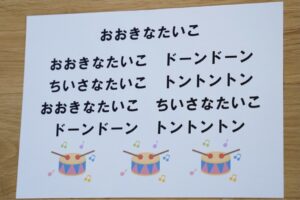 おおきなたいこ
おおきなたいこ　ドーンドーン
ちいさなたいこ　トントントン
おおきなたいこ　ちいさなたいこ
ドーンドーン　トントントン